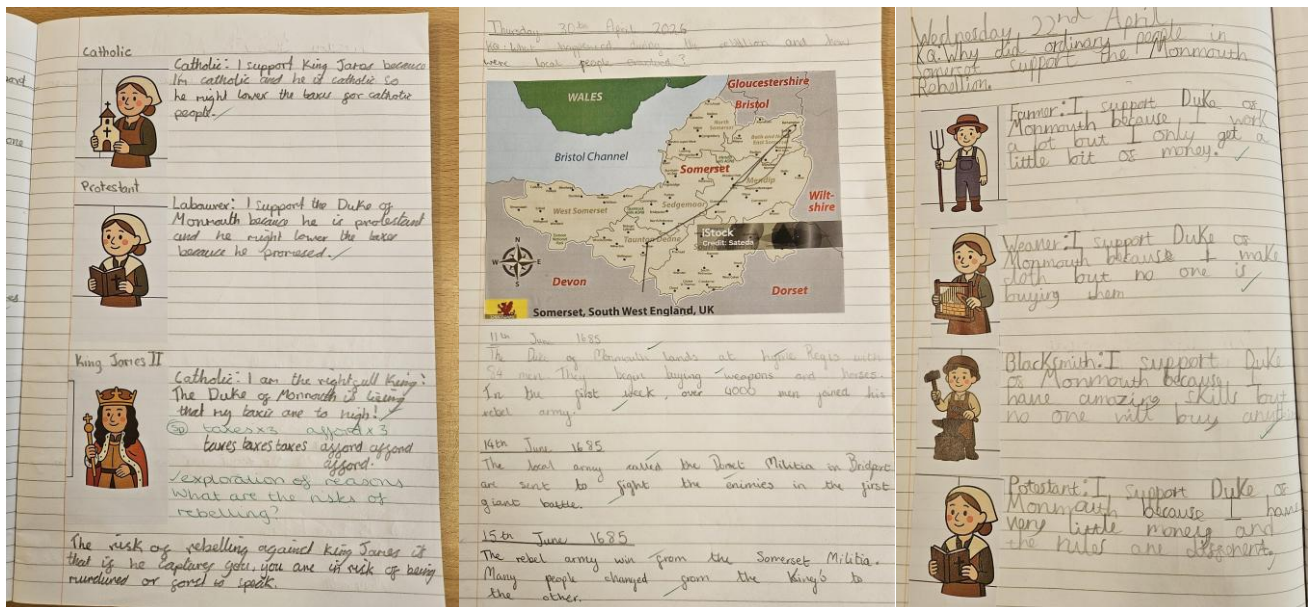 Catholic
Catholic: I support King James because
I'm catholic and he is catholic so
he might lower the taxes for catholic
people.
Protestant
Labourer: I support the Duke of
Monmouth because he is protestant
and he might lower the taxes
because he promised.
King James II
Catholic: I am the rightfull King!
The Duke of Monmouth is lieing
that my taxes are to high!
Sp taxes x3 afford x3
taxes taxes taxes afford afford
afford.
exploration of reasons
What are the risks of
rebelling?
The risk of rebelling against King James is
that if he captures you, you are in risk of being
or to speak.
Thursday 30th April 2026
KQ: What happened during the rebellion and how
were local people involved?
WALES
Gloucestershire
Bristol
Bristol Channel
North Somerset
Bath and North East Somerset
Somerset
Mendip
Wilt-
shire
West Somerset
Sedgemoor
Taunton Deane
iStock
Credit: Sateda
N
W E
S
Devon
Dorset
Somerset, South West England, UK
11th June 1685
The Duke of Monmouth lands at Regis with
men They begin buying weapons and horses.
In the first week, over 4000 men joined his
rebel army.
14th June 1685
The local army called the Dorset Militia in Bridport
are sent to fight the enimies in the first
giant battle.
15th June 1685
The rebel army win from the Somerset Militia.
Many people changed from the King's to
the other.
Wednesday 22nd April
KQ: Why did ordinary people in
Somerset support the Monmouth
Rebellion.
Farmer: I support Duke of
Monmouth because I work
a lot but I only get a
little bit of money.
Weaver: I support Duke of
Monmouth because I make
cloth but no one is
buying them
Blacksmith: I support Duke
of Monmouth because I
have amazing skills but
no one will buy
Potestant: I support Duke of
Monmouth because I have
very little money and
the rules are